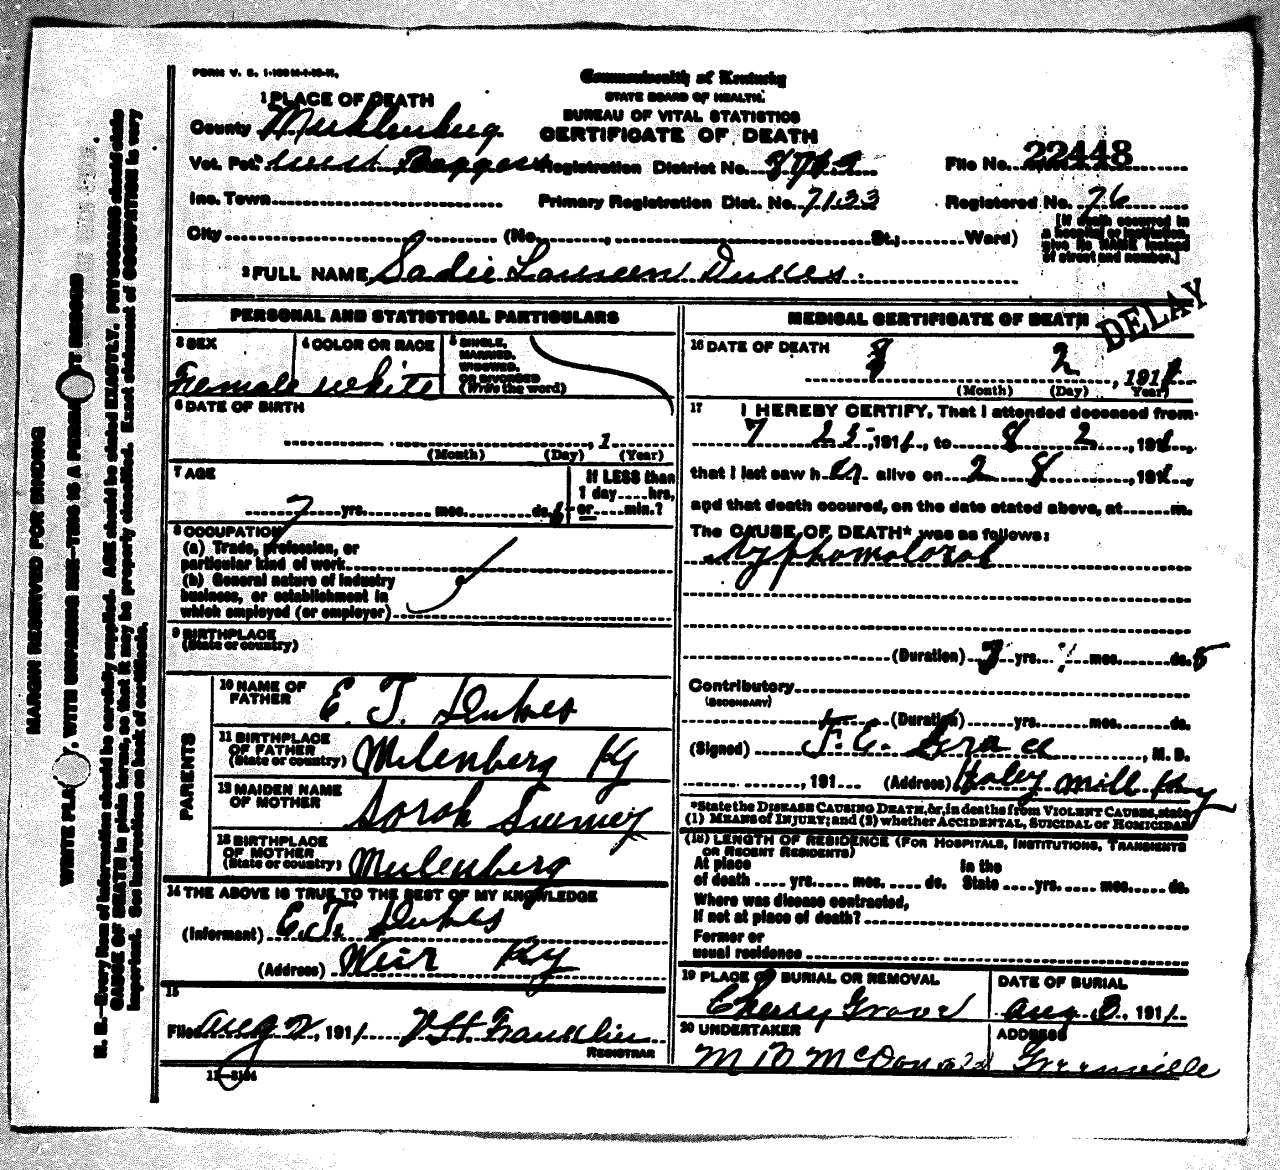 FORM V. S. 1-
Commonwealth of Kentucky
STATE BOARD OF HEALTH.
BUREAU OF VITAL STATISTICS
CERTIFICATE OF DEATH
1 PLACE OF DEATH
County Muhlenberg
Vot. Pct. West Registration District No.
File No. 22448
Inc. Town Primary Registration Dist. No. 7133
Registered No. 76
City (No. , St.; Ward)
[If death occurred in
a hospital or institution,
give its NAME instead
of street and number.]
2 FULL NAME Sadie Dukes.
DELAY
PERSONAL AND STATISTICAL PARTICULARS
3 SEX Female
4 COLOR OR RACE white
5 SINGLE,
MARRIED,
WIDOWED,
OR DIVORCED
(Write the word)
6 DATE OF BIRTH
, 1
(Month) (Day) (Year)
7 AGE
7 yrs. mos. ds.
If LESS than
1 day hrs,
or min.?
8 OCCUPATION
(a) Trade, profession, or
particular kind of work
(b) General nature of industry
business, or establishment in
which employed (or employer)
9 BIRTHPLACE
(State or country)
PARENTS
10 NAME OF
FATHER E. T. Dukes
11 BIRTHPLACE
OF FATHER
(State or country) Mulenberg Ky
12 MAIDEN NAME
OF MOTHER Sarah
13 BIRTHPLACE
OF MOTHER
(State or country) Mulenberg
14 THE ABOVE IS TRUE TO THE BEST OF MY KNOWLEDGE
(Informant) E.T. Dukes
(Address) Weir Ky
15
Filed Aug 2, 1911 Franklin
REGISTRAR
11-3184
MEDICAL CERTIFICATE OF DEATH
16 DATE OF DEATH
8 2, 1911
(Month) (Day) Year)
17 I HEREBY CERTIFY, That I attended deceased from
7 25, 1911, to 8 2, 1911,
that I last saw her alive on 2 8, 1911,
and that death occured, on the date stated above, at m.
The CAUSE OF DEATH* was as follows:
(Duration) yrs. mos. ds. 5
Contributory
(SECONDARY)
(Duration) yrs. mos. ds.
(Signed) , M. D.
, 191 (Address) Haley Mill Ky
*State the DISEASE CAUSING DEATH, or, in deaths from VIOLENT CAUSES, state
(1) MEANS of INJURY; and (2) whether ACCIDENTAL, SUICIDAL or HOMICIDAL
(18) LENGTH OF RESIDENCE (FOR HOSPITALS, INSTITUTIONS, TRANSIENTS
OR RECENT RESIDENTS)
At place In the
of death yrs. mos. ds. State yrs. mos. ds.
Where was disease contracted,
If not at place of death?
Former or
usual residence
19 PLACE OF BURIAL OR REMOVAL
Cherry Grove
DATE OF BURIAL
Aug 3, 1911
20 UNDERTAKER
ADDRESS
Greenville
MARGIN RESERVED FOR BINDING
WRITE PLA , WITH UNFADING INK—THIS IS A PERMA T RECORD
N. B.—Every item of information should be carefully supplied. AGE should be stated EXACTLY. PHYSICIANS should state
CAUSE OF DEATH in plain terms, so that it may be properly classified. Exact statement of OCCUPATION is very
important. See instructions on back of certificate.